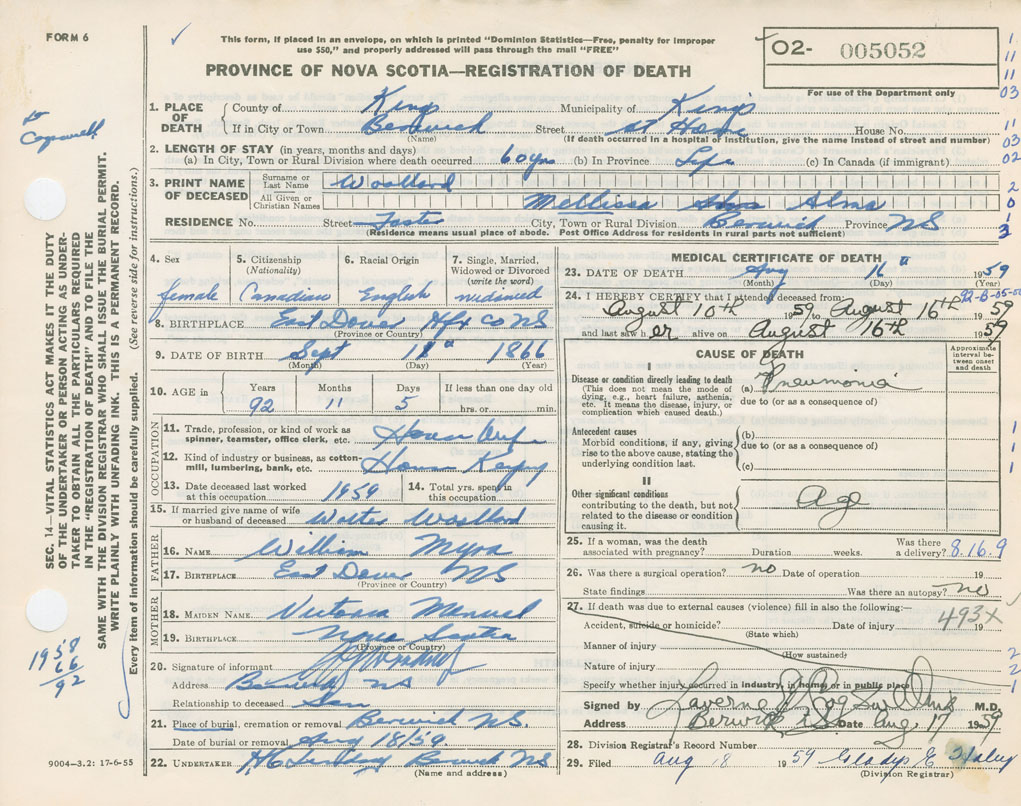 FORM 6
This form, if placed in an envelope, on which is printed "Dominion Statistics—Free, penalty for improper
use $50," and properly addressed will pass through the mail "FREE"
O2- 005052
For use of the Department only
PROVINCE OF NOVA SCOTIA—REGISTRATION OF DEATH
1. PLACE OF DEATH County of Kings Municipality of Kings
If in City or Town Berwick Street at Home House No.
(Name) (If death occurred in a hospital or institution, give the name instead of street and number)
2. LENGTH OF STAY (in years, months and days)
(a) In City, Town or Rural Division where death occurred 60 yrs (b) In Province Life (c) In Canada (if immigrant)
3. PRINT NAME OF DECEASED Surname or Last Name Woodland
All Given or Christian Names Mellissa Alma
RESIDENCE No. Street Foster City, Town or Rural Division Berwick Province NS
(Residence means usual place of abode. Post Office Address for residents in rural parts not sufficient)
4. Sex female
5. Citizenship (Nationality) Canadian
6. Racial Origin English
7. Single, Married, Widowed or Divorced (write the word) widowed
8. BIRTHPLACE East Dover Hfx Co NS
(Province or Country)
9. DATE OF BIRTH Sept 11" 1866
(Month) (Day) (Year)
10. AGE in Years 92 Months 11 Days 5 If less than one day old hrs. or min.
OCCUPATION
11. Trade, profession, or kind of work as spinner, teamster, office clerk, etc. House Wife
12. Kind of industry or business, as cotton-mill, lumbering, bank, etc. House Keeping
13. Date deceased last worked at this occupation 1959
14. Total yrs. spent in this occupation
15. If married give name of wife or husband of deceased Walter Woodland
FATHER
16. NAME William Myra
17. BIRTHPLACE East Dover NS
(Province or Country)
MOTHER
18. MAIDEN NAME Victoria Manuel
19. BIRTHPLACE Nova Scotia
(Province or Country)
20. Signature of informant
Address Berwick NS
Relationship to deceased Son
21. Place of burial, cremation or removal Berwick N.S.
Date of burial or removal Aug 18/59
22. UNDERTAKER Berwick NS
(Name and address)
9004—3.2: 17-6-55
MEDICAL CERTIFICATE OF DEATH
23. DATE OF DEATH Aug 16" 1959
(Month) (Day) (Year)
92-B-05-00
24. I HEREBY CERTIFY that I attended deceased from:
August 10th 1959 to August 16th 1959
and last saw her alive on August 16th 1959
CAUSE OF DEATH
Approximate interval between onset and death
I
Disease or condition directly leading to death (a) Pneumonia
(This does not mean the mode of dying, e.g., heart failure, asthenia, etc. It means the disease, injury, or complication which caused death.)
due to (or as a consequence of)
Antecedent causes
Morbid conditions, if any, giving rise to the above cause, stating the underlying condition last.
(b)
due to (or as a consequence of)
(c)
II
Other significant conditions contributing to the death, but not related to the disease or condition causing it.
Age
25. If a woman, was the death associated with pregnancy? Duration weeks. Was there a delivery? 8.16.9
26. Was there a surgical operation? no Date of operation 19
State findings Was there an autopsy? no
27. If death was due to external causes (violence) fill in also the following:—
Accident, suicide or homicide? Date of injury 19
(State which)
493x
Manner of injury
(How sustained)
Nature of injury
Specify whether injury occurred in industry, in home, or in public place
Signed by M.D.
Address Berwick N.S. Date Aug. 17 1959
28. Division Registrar's Record Number
29. Filed Aug 18 1959 Gladys E
(Division Registrar)
SEC. 14—VITAL STATISTICS ACT MAKES IT THE DUTY
OF THE UNDERTAKER OR PERSON ACTING AS UNDER-
TAKER TO OBTAIN ALL THE PARTICULARS REQUIRED
IN THE "REGISTRATION OF DEATH" AND TO FILE THE
SAME WITH THE DIVISION REGISTRAR WHO SHALL ISSUE THE BURIAL PERMIT.
WRITE PLAINLY WITH UNFADING INK. THIS IS A PERMANENT RECORD.
Every item of information should be carefully supplied. (See reverse side for instructions.)
1958
66
92
1
11
11
03
11
03
02
2
0
1
3
1
1
1
2
2
1